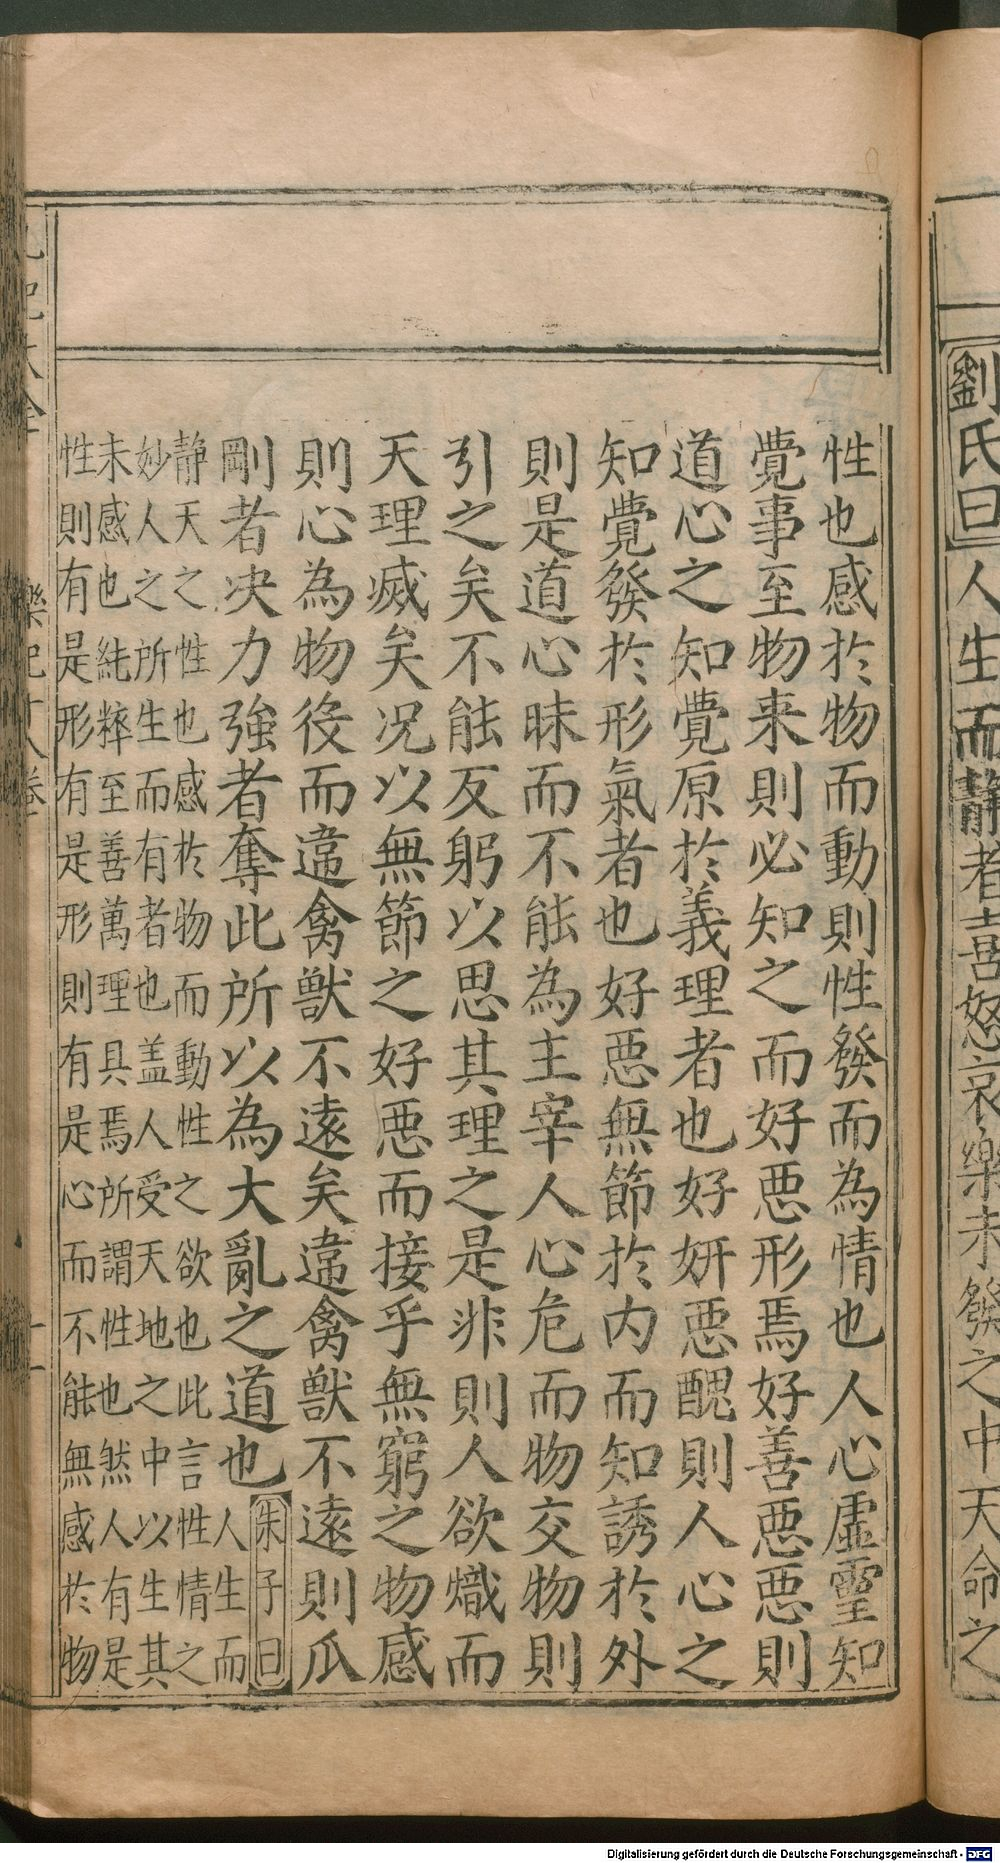 劉氏曰人生而靜者喜怒哀樂未發之中天命之
性也感於物而動則性發而為情也人心虛靈知
覺事至物来則必知之而好惡形焉好善惡惡則
道心之知覺原於義理者也好妍惡醜則人心之
知覺發於形氣者也好惡無節於內而知誘於外
則是道心昧而不能為主宰人心危而物交物則
引之矣不能反躬以思其理之是非則人欲熾而
天理滅矣况以無節之好惡而接乎無窮之物感
則心為物役而違禽獸不遠矣違禽獸不遠則爪
剛者决力強者奪此所以為大亂之道也朱子曰
人生而
靜天之性也感於物而動性之欲也此言性情之
妙人之所生而有者也盖人受天地之中以生其
未感也純粹至善萬理具焉所謂性也然人有是
性則有是形有是形則有是心而不能無感於物
樂記十八卷
十一
Digitalisierung gefördert durch die Deutsche Forschungsgemeinschaft - DFG